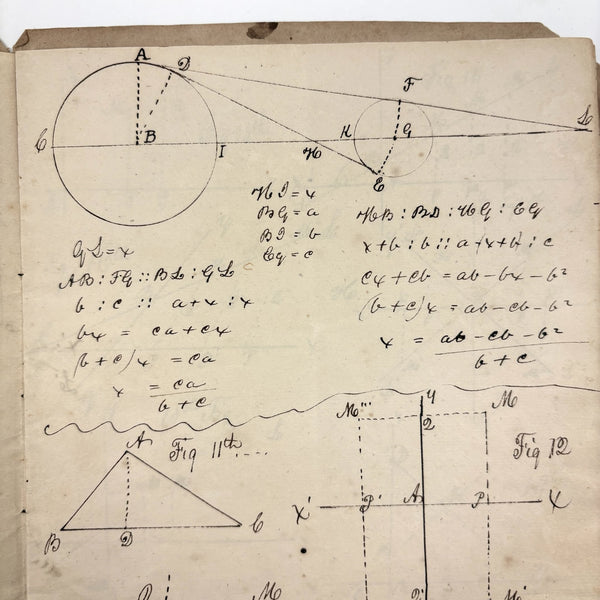 A D
F
C B I H K G L
E
HI = x
BG = a
BI = b
EG = c
HB : BD : HG : EG
x+b : b :: a-(x+b) : c
cx + cb = ab - bx - b²
(b+c)x = ab - cb - b²
x = ab - cb - b²
b + c
GL = x
AB : FG :: BL : GL
b : c :: a+x : x
bx = ca + cx
(b+c)x = ca
x = ca
b + c
A Fig 11th....
B D C
y
M''' Q M
Fig 12
X' P' A P X
Q' M'
D M